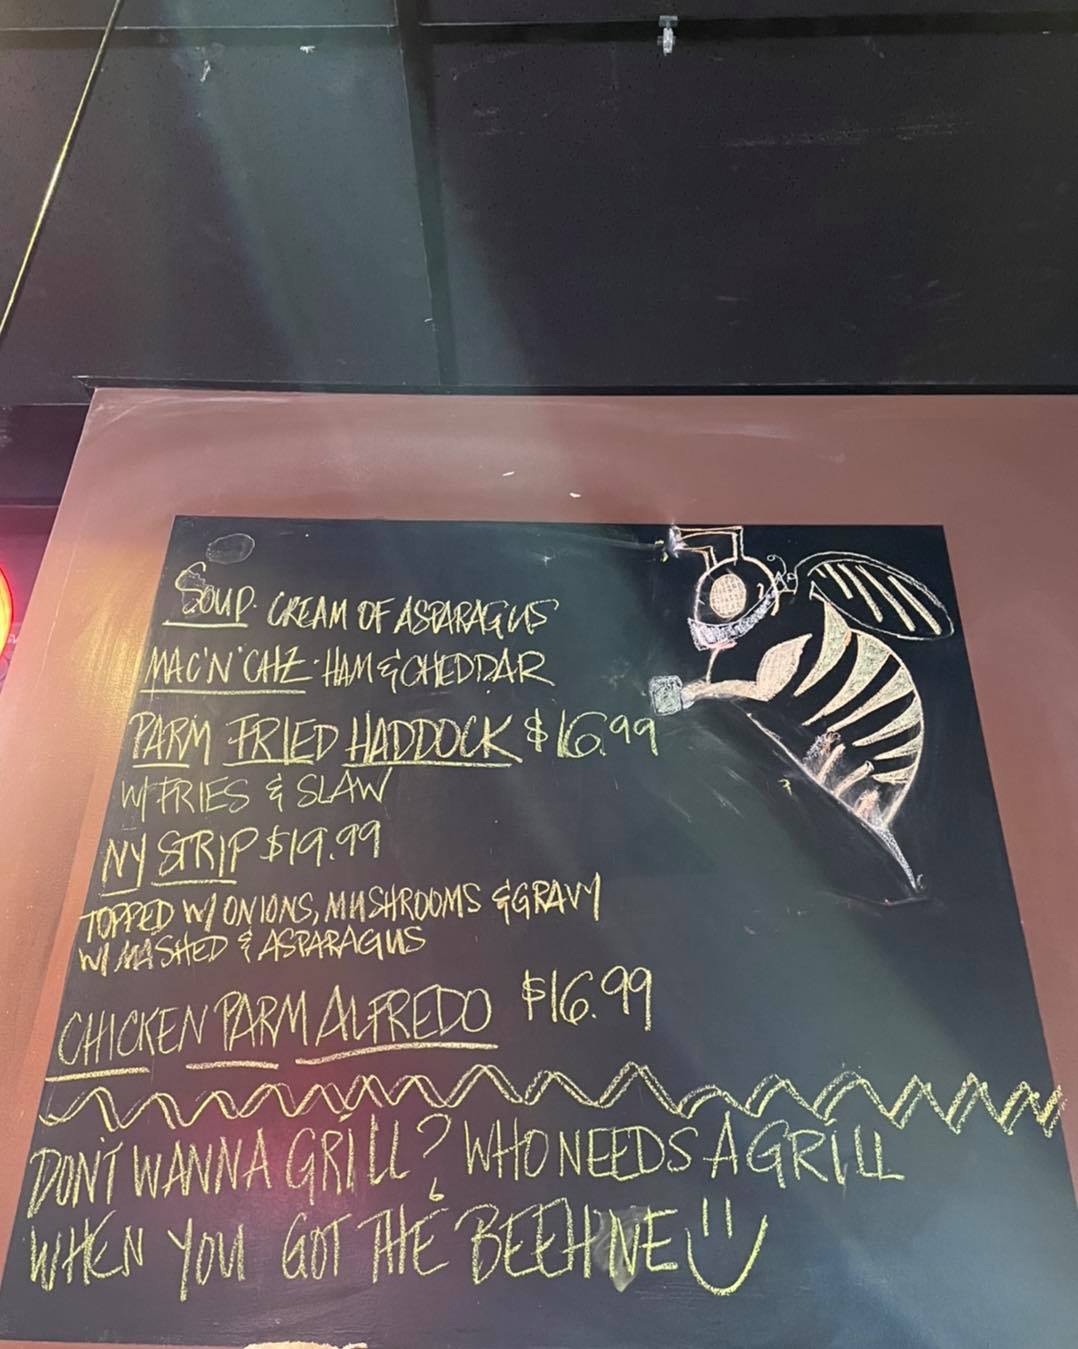 SOUP· CREAM OF ASPARAGUS
MAC'N'CHZ· HAM & CHEDDAR
PARM FRIED HADDOCK $16.99
W/ FRIES & SLAW
NY STRIP $19.99
TOPPED W/ ONIONS, MUSHROOMS & GRAVY
W/ MASHED & ASPARAGUS
CHICKEN PARM ALFREDO $16.99
DON'T WANNA GRILL? WHO NEEDS A GRILL
WHEN YOU GOT THE BEEHIVE